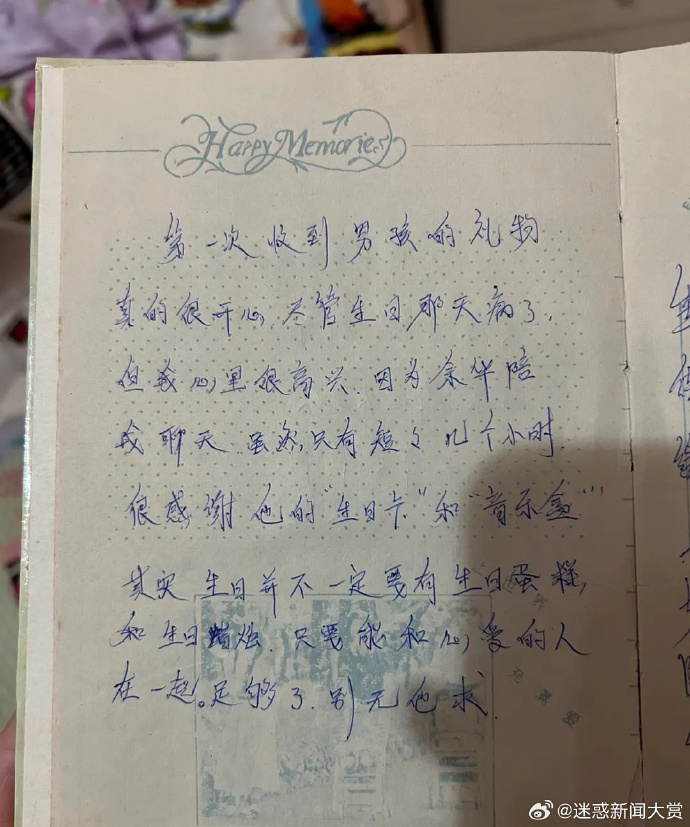 Happy Memories
第一次收到男孩的礼物
真的很开心,尽管生日那天病了,
但我心里很高兴.因为余华陪
我聊天.虽然只有短々几个小时.
很感谢他的"生日卡"和"音乐盒"
其实生日并不一定要有生日蛋糕,
和生日蜡烛.只要能和心爱的人
在一起。足够了.别无他求.
@迷惑新闻大赏